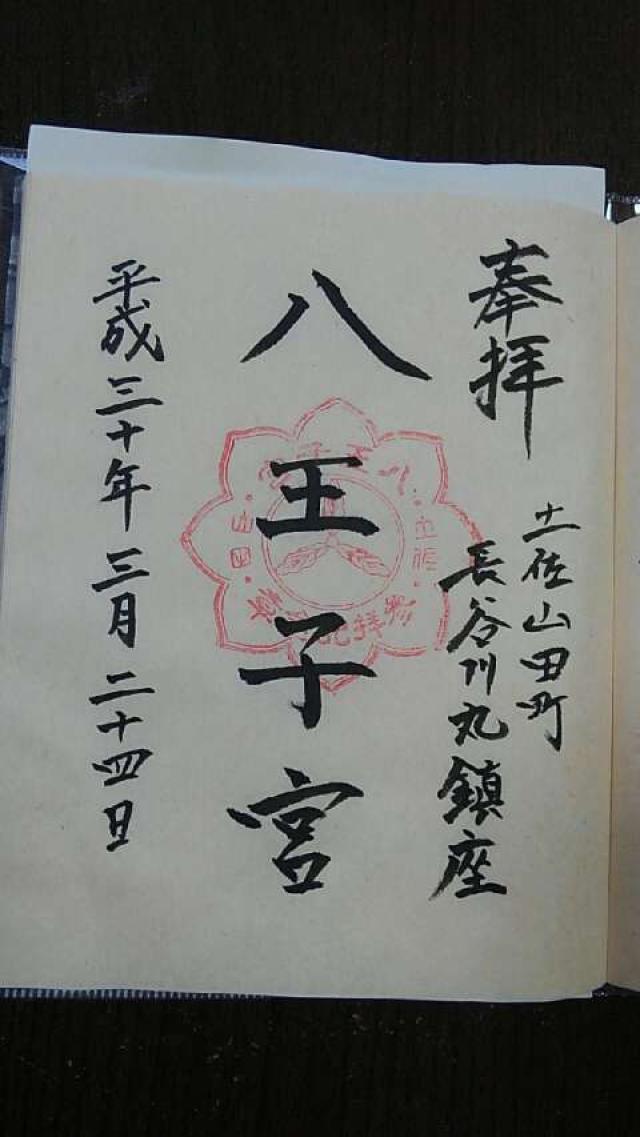 奉拝
土佐山田町
長谷川丸鎮座
八王子宮
平成三十年三月二十四日
土佐
山田